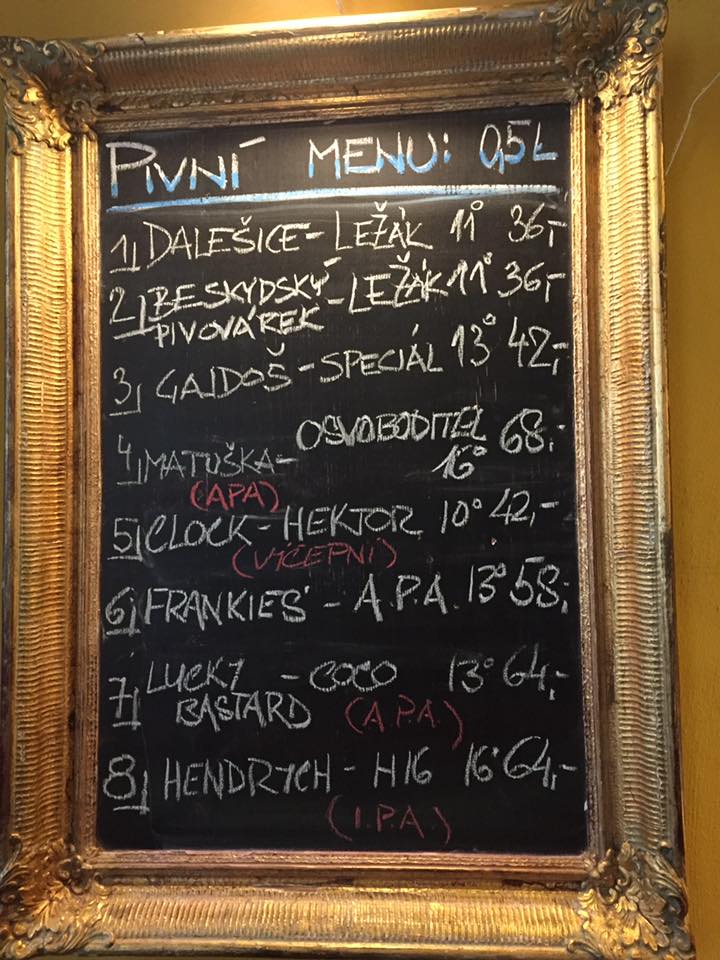 PIVNÍ MENU: 0,5L
1) DALEŠICE - LEŽÁK 11° 36,-
2) BESKYDSKÝ PIVOVÁREK - LEŽÁK 11° 36,-
3) GAJDOŠ - SPECIÁL 13° 42,-
4) MATUŠKA - OSVOBODITEL 16° 68,-
(APA)
5) CLOCK - HEKTOR 10° 42,-
(VÝČEPNÍ)
6) FRANKIES - A.P.A. 13° 58,-
7) LUCKY BASTARD - COCO 13° 64,-
(A.P.A.)
8) HENDRYCH - H16 16° 64,-
(I.P.A.)